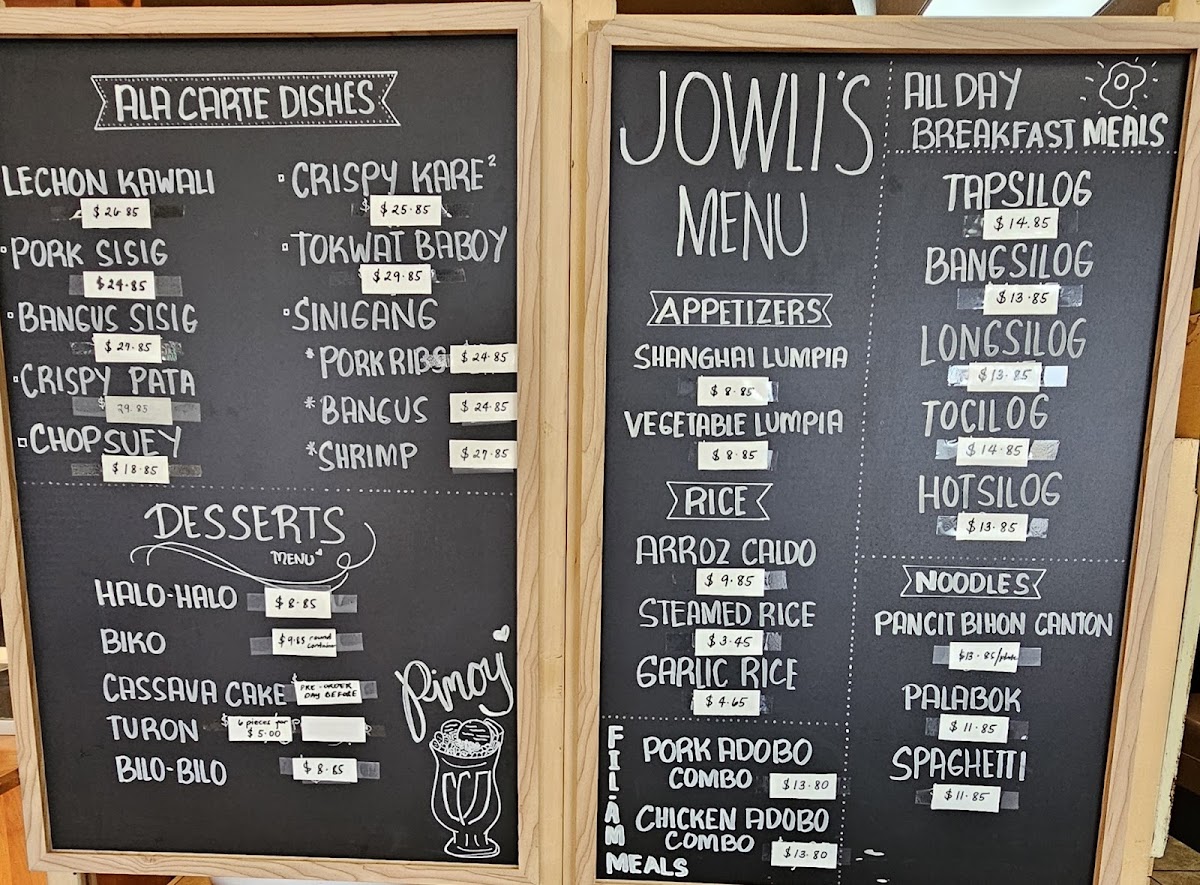 ALA CARTE DISHES
LECHON KAWALI
$26.85
PORK SISIG
$24.85
BANGUS SISIG
$27.85
CRISPY PATA
29.85
CHOPSUEY
$18.85
CRISPY KARE²
$25.85
TOKWAT BABOY
$29.85
SINIGANG
*PORK RIBS $24.85
*BANGUS $24.85
*SHRIMP $27.85
DESSERTS
MENU
HALO-HALO $8.85
BIKO $9.85 round container
CASSAVA CAKE PRE-ORDER DAY BEFORE
TURON 6 pieces for $5.00
BILO-BILO $8.85
Pinoy
JOWLI'S
MENU
APPETIZERS
SHANGHAI LUMPIA
$8.85
VEGETABLE LUMPIA
$8.85
RICE
ARROZ CALDO
$9.85
STEAMED RICE
$3.45
GARLIC RICE
$4.65
FIL-AM MEALS
PORK ADOBO
COMBO $13.80
CHICKEN ADOBO
COMBO $13.80
ALL DAY
BREAKFAST MEALS
TAPSILOG
$14.85
BANGSILOG
$13.85
LONGSILOG
$13.85
TOCILOG
$14.85
HOTSILOG
$13.85
NOODLES
PANCIT BIHON CANTON
$13.85/plate
PALABOK
$11.85
SPAGHETTI
$11.85